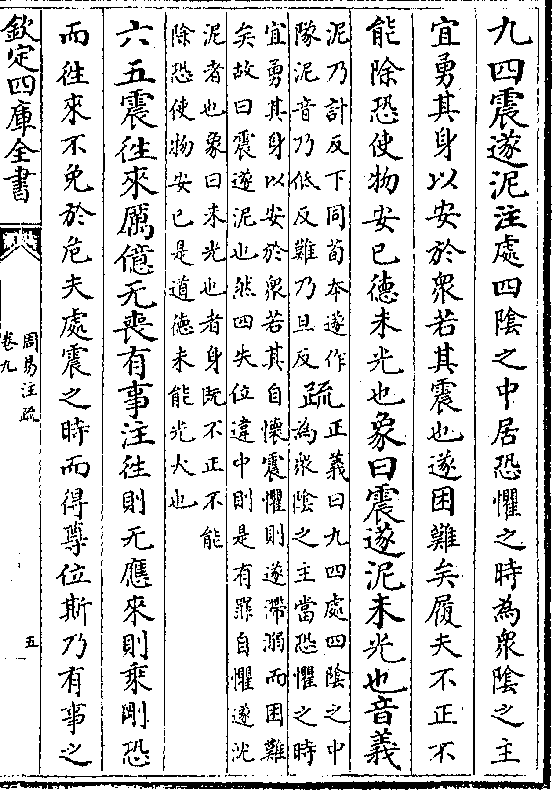 九四震遂泥注處四陰之中居恐懼之時為衆陰之主
宜勇其身以安於衆若其震也遂困難矣履夫不正不
能除恐使物安已德未光也象曰震遂泥未光也音義
泥乃計反下同荀本遂作
隊泥音乃低反難乃旦反
疏
正義曰九四處四陰之中
為衆陰之主當恐懼之時
宜勇其身以安於衆若其自懷震懼則遂滯溺而困難
矣故曰震遂泥也然四失位違中則是有罪自懼遂沈
泥者也象曰未光也者身既不正不能
除恐使物安已是道德未能光大也
六五震徃來厲億无喪有事注徃則无應來則乘剛恐
而徃來不免於危夫處震之時而得尊位斯乃有事之
欽定四庫全書
周易注疏
卷九
五